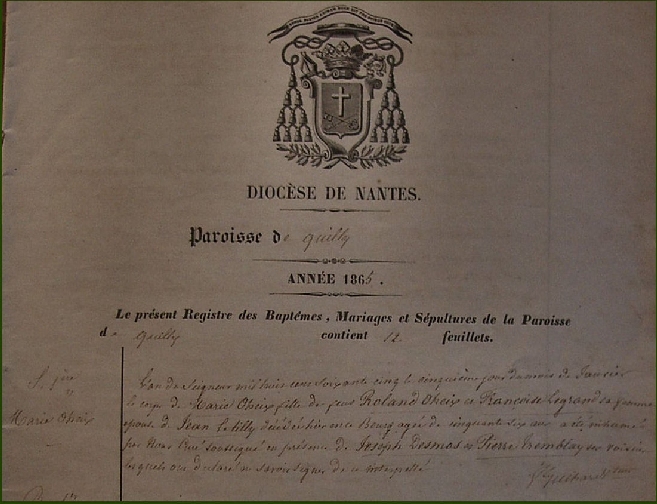 DIOCÈSE DE NANTES.
Paroisse de Quilly
ANNÉE 1865.
Le présent Registre des Baptêmes, Mariages et Sépultures de la Paroisse
de Quilly contient 12 feuillets.
Marie Oheix
L'an du Seigneur mil huit cent soixante cinq le cinquième jour du mois de Janvier
le corps de Marie Oheix fille de feus Roland Oheix et Françoise Legrand sa femme
épouse de Jean Letilly décédé hier en ce Bourg agé de cinquante six ans a été inhumé
par Nous soussigné en présence de Joseph Desmas et Pierre Tremblay ses voisins
lesquels ont déclaré ne savoir signer de ce interpellé